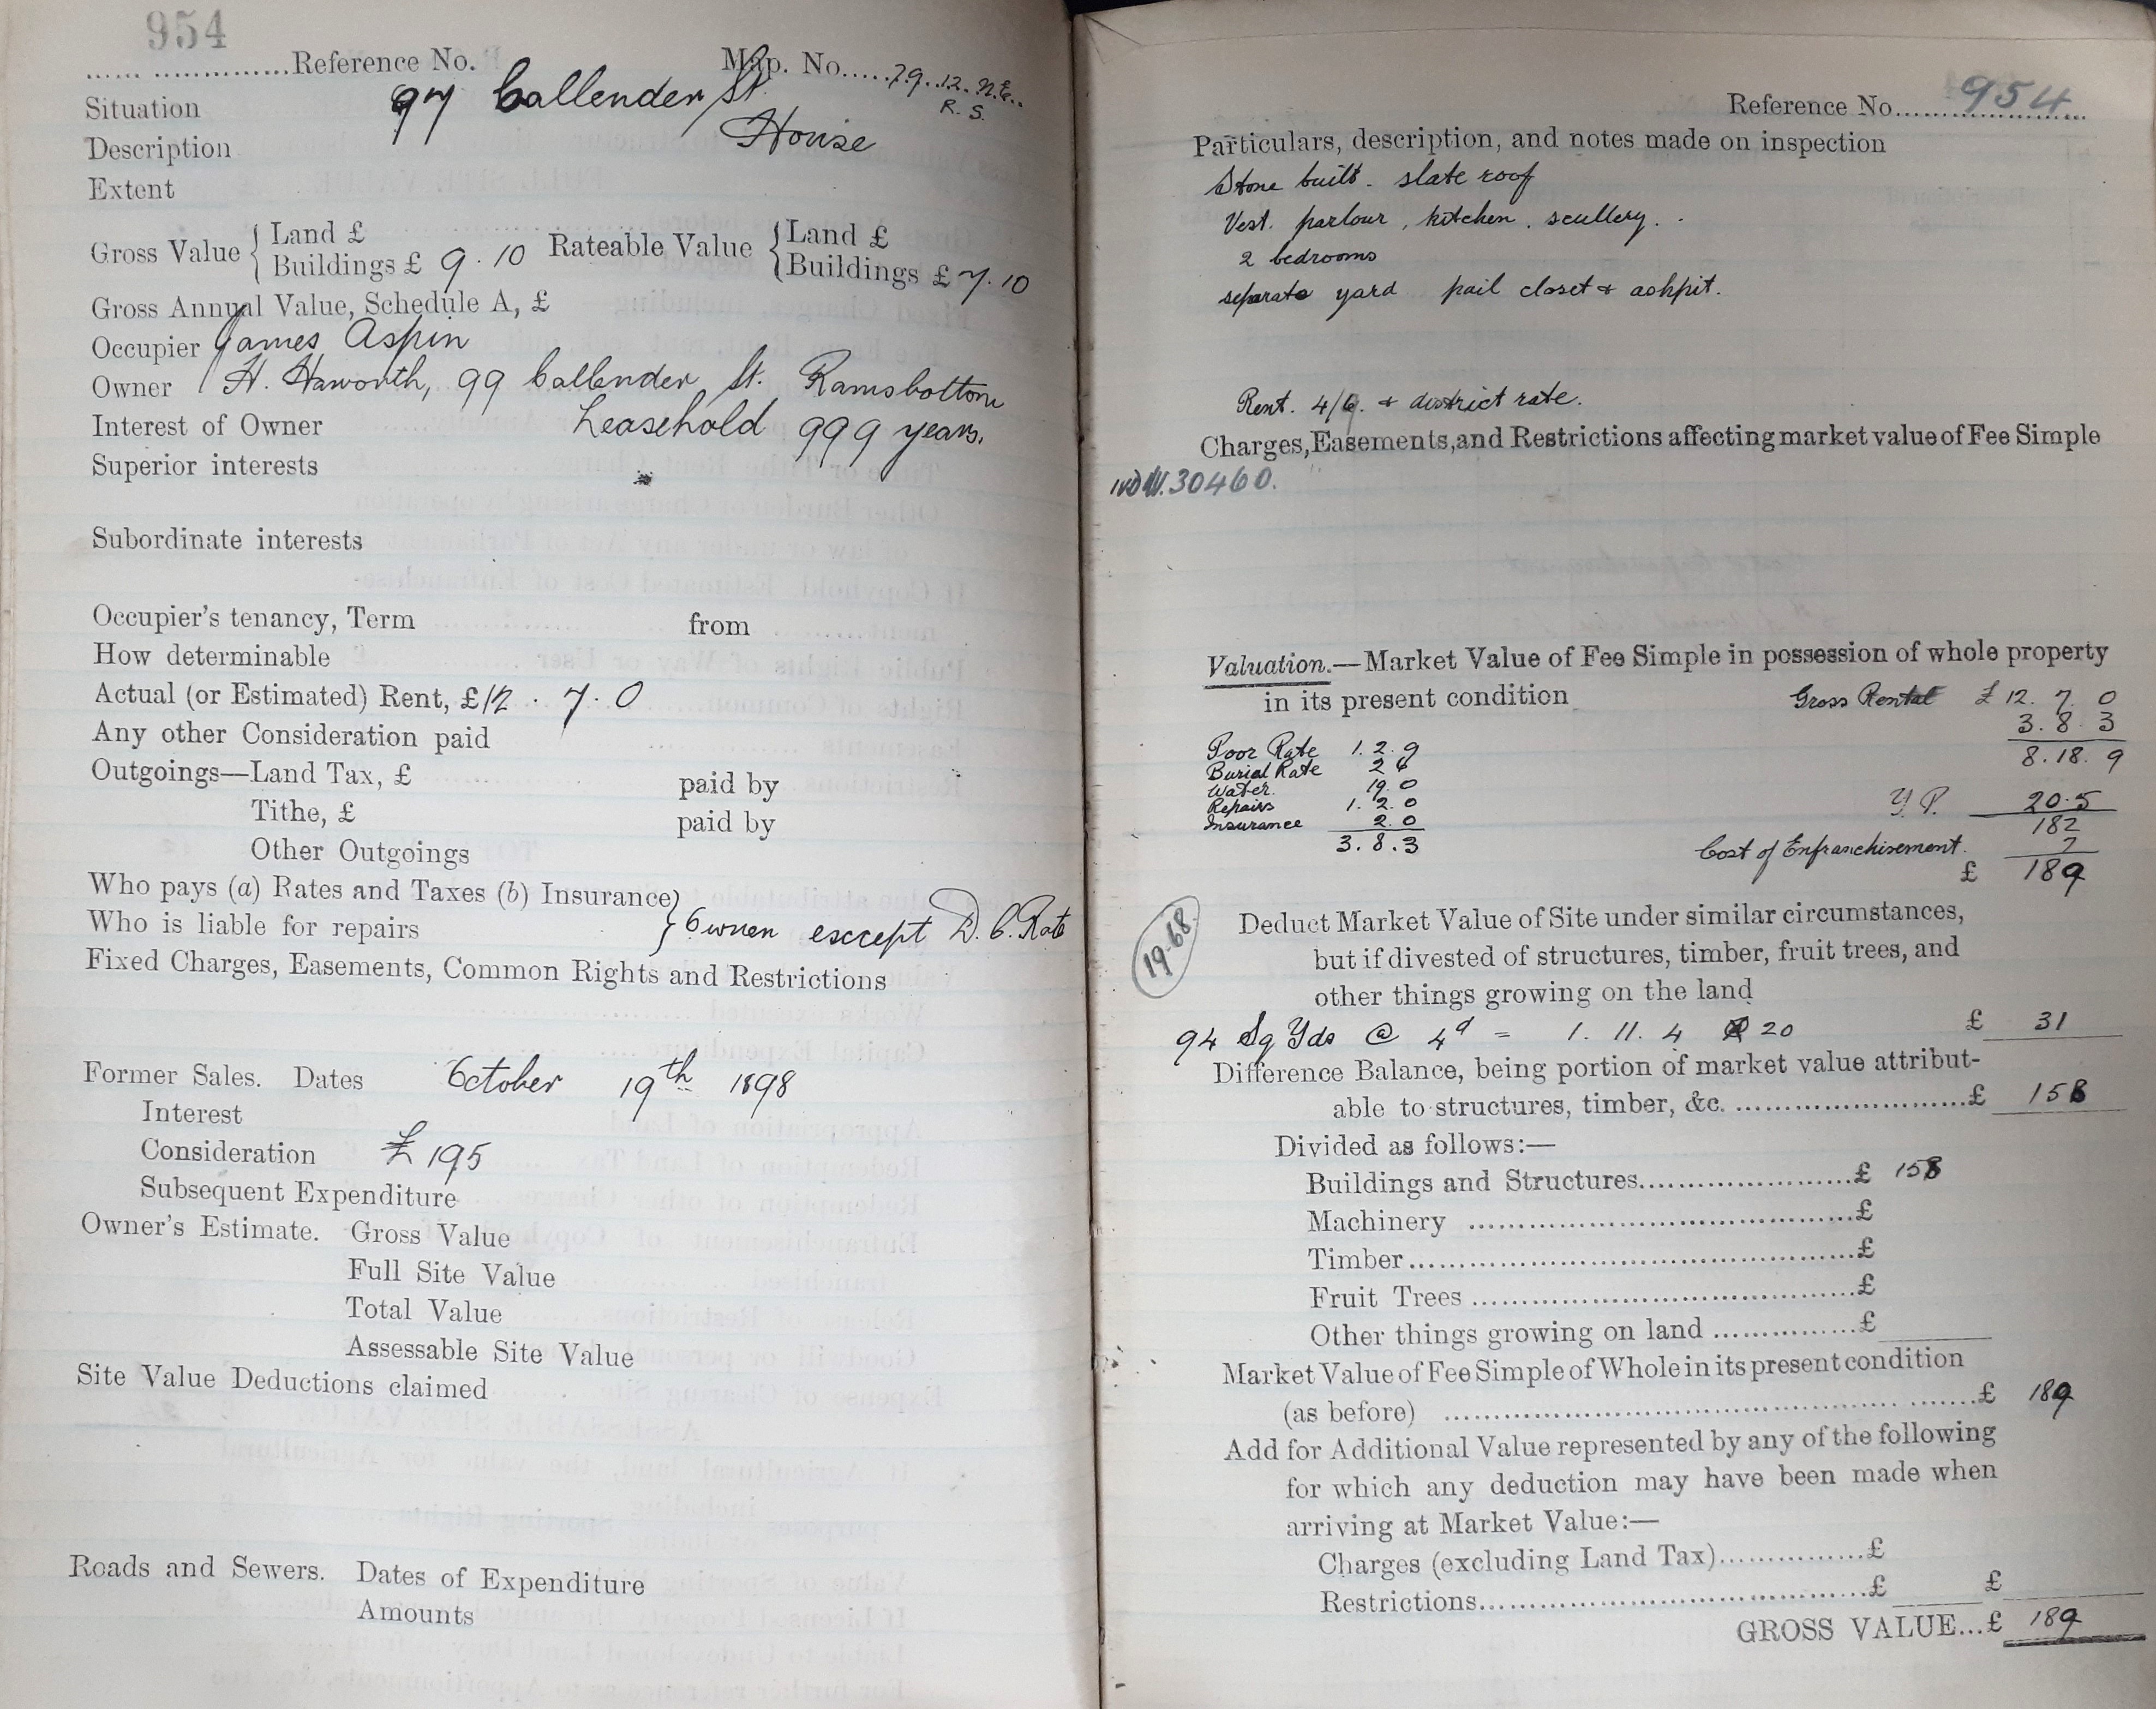 954
Reference No. Map. No. 79. 12. N.E.
R. S.
Situation 97 Callender St.
Description House
Extent
Gross Value { Land £ Rateable Value { Land £
Buildings £ 9.10 Buildings £ 7.10
Gross Annual Value, Schedule A, £
Occupier James Aspin
Owner H. Haworth, 99 Callender St. Ramsbottom
Interest of Owner Leasehold 999 years.
Superior interests
Subordinate interests
Occupier's tenancy, Term from
How determinable
Actual (or Estimated) Rent, £12 . 7 . 0
Any other Consideration paid
Outgoings—Land Tax, £ paid by
Tithe, £ paid by
Other Outgoings
Who pays (a) Rates and Taxes (b) Insurance }
Who is liable for repairs } Owner except D. C. Rate
Fixed Charges, Easements, Common Rights and Restrictions
Former Sales. Dates October 19th 1898
Interest
Consideration £195
Subsequent Expenditure
Owner's Estimate. Gross Value
Full Site Value
Total Value
Assessable Site Value
Site Value Deductions claimed
Roads and Sewers. Dates of Expenditure
Amounts
Reference No. 954
Particulars, description, and notes made on inspection
Stone built. slate roof
Vest. parlour, kitchen, scullery.
2 bedrooms
separate yard pail closet & ashpit.
Rent. 4/6. & district rate.
Charges, Easements, and Restrictions affecting market value of Fee Simple
30460.
Valuation.—Market Value of Fee Simple in possession of whole property
in its present condition Gross Rental £ 12. 7. 0
3. 8. 3
Poor Rate 1. 2. 9 8. 18. 9
Burial Rate 2 6
Water. 19. 0
Repairs 1. 2. 0 Y. P. 20.5
Insurance 2. 0 182
3. 8. 3 Cost of Enfranchisement. 7
£ 189
19.68
Deduct Market Value of Site under similar circumstances,
but if divested of structures, timber, fruit trees, and
other things growing on the land
94 Sq Yds @ 4d = 1. 11. 4 20 £ 31
Difference Balance, being portion of market value attribut-
able to structures, timber, &c. £ 158
Divided as follows:—
Buildings and Structures £ 158
Machinery £
Timber £
Fruit Trees £
Other things growing on land £
Market Value of Fee Simple of Whole in its present condition
(as before) £ 189
Add for Additional Value represented by any of the following
for which any deduction may have been made when
arriving at Market Value:—
Charges (excluding Land Tax) £
Restrictions £ £
GROSS VALUE...£ 189